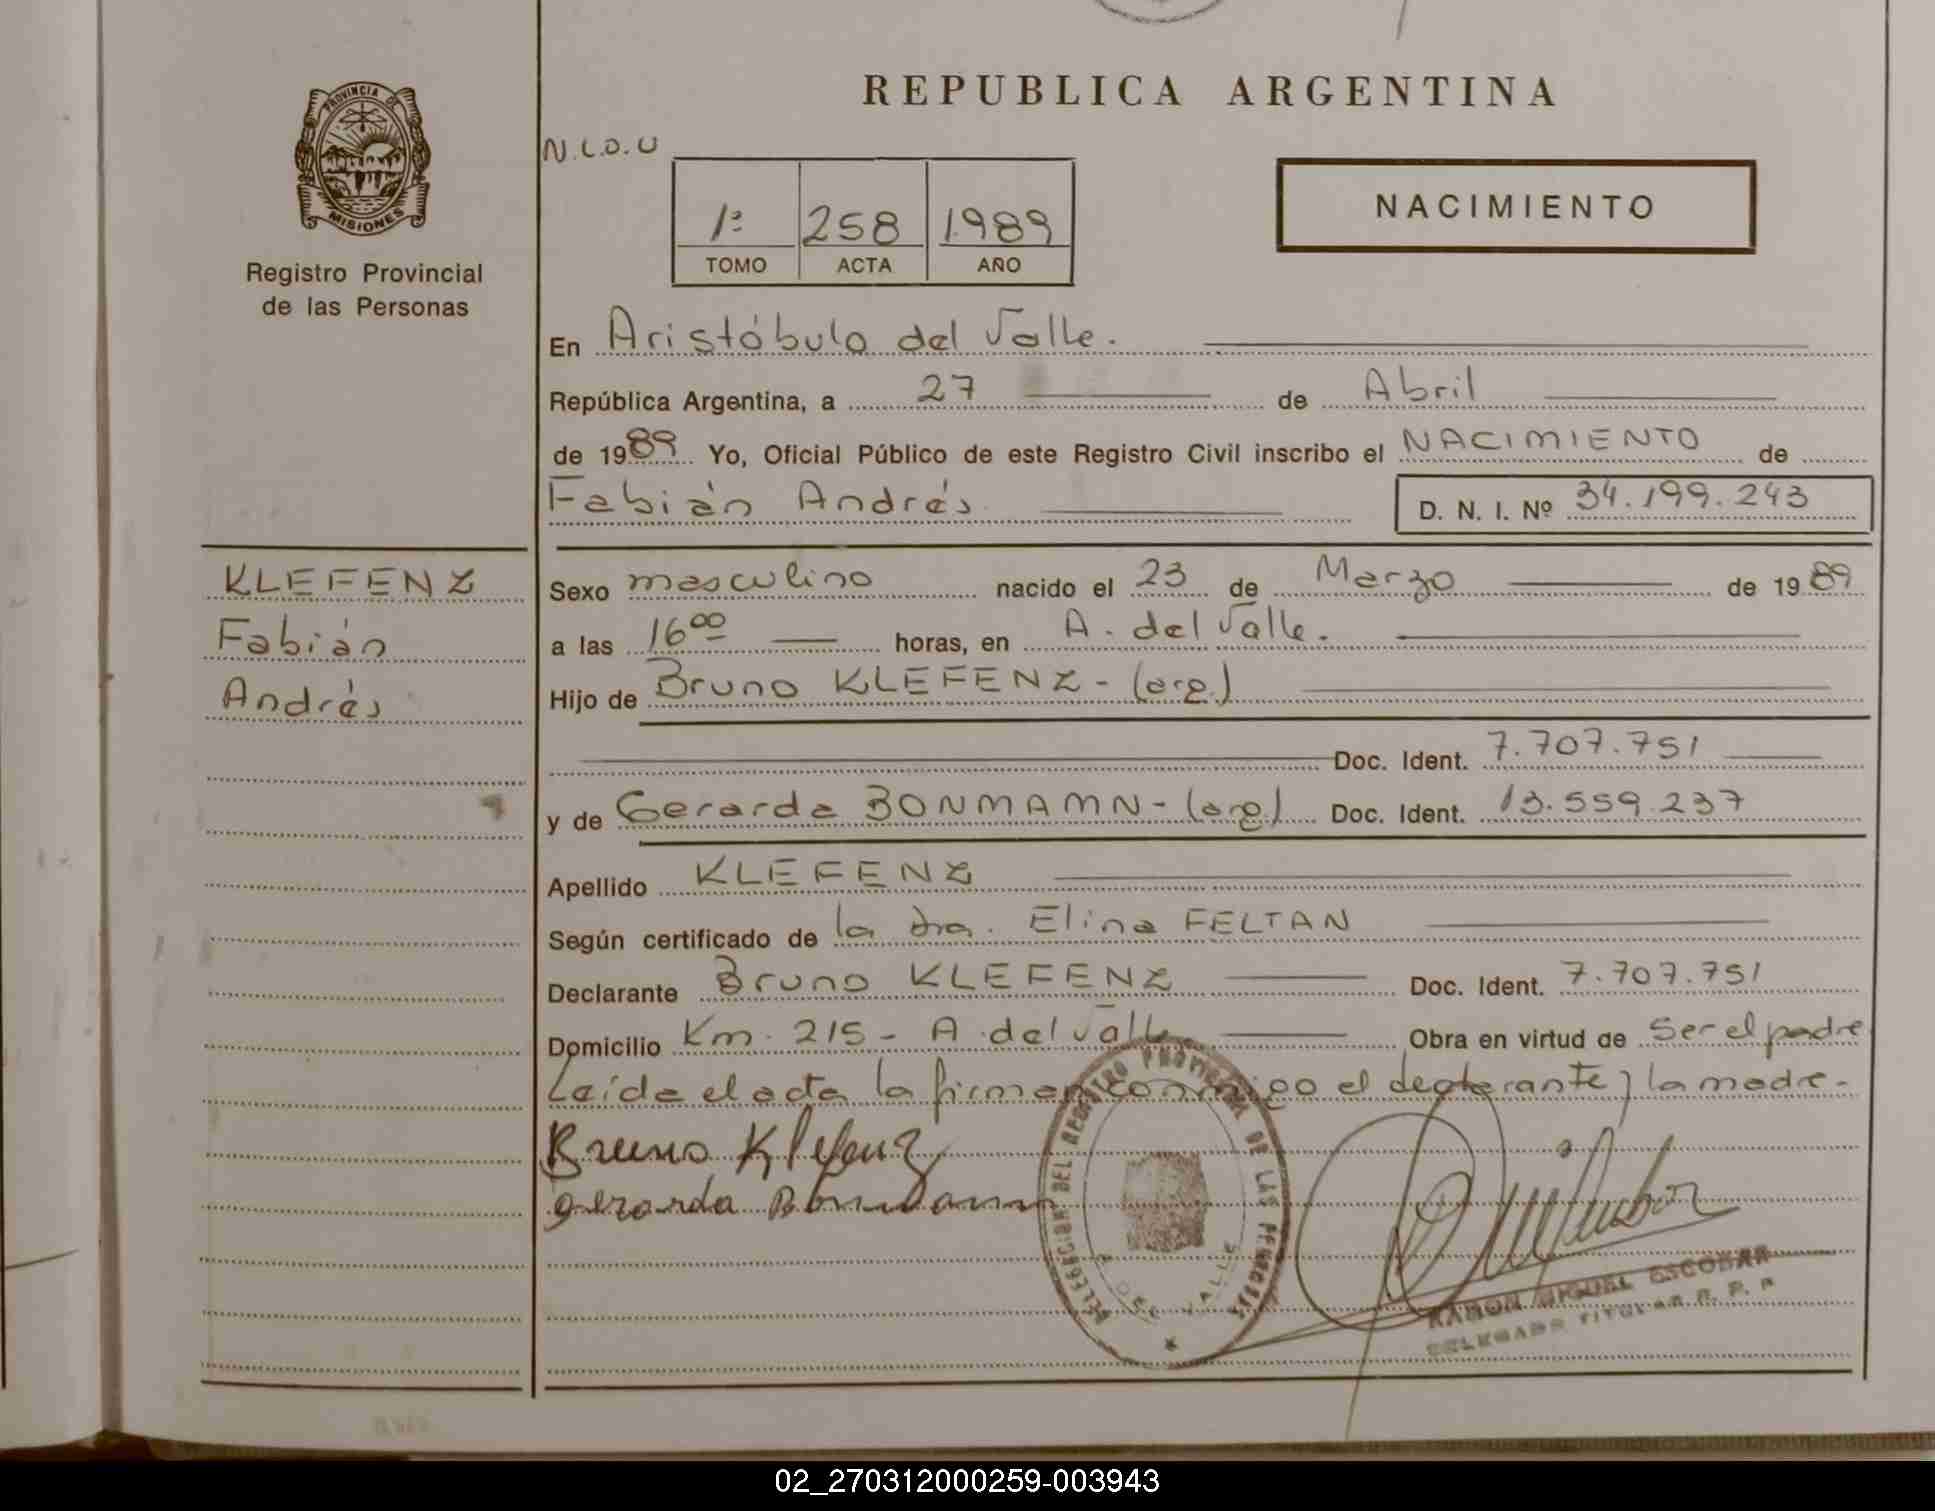 REPUBLICA ARGENTINA
PROVINCIA DE
MISIONES
Registro Provincial
de las Personas
N.L.O.U
1º 258 1989
TOMO ACTA AÑO
NACIMIENTO
En Aristóbulo del Valle.
República Argentina, a 27 de Abril
de 1989 Yo, Oficial Público de este Registro Civil inscribo el NACIMIENTO de
Fabián Andrés
D. N. I. Nº 34.199.243
KLEFENZ
Fabián
Andrés
Sexo masculino nacido el 23 de Marzo de 1989
a las 16 00 horas, en A. del Valle.
Hijo de Bruno KLEFENZ - (arg.)
Doc. Ident. 7.707.751
y de Gerarda BONMAMN - (arg) Doc. Ident. 13.559.237
Apellido KLEFENZ
Según certificado de la dra. Elina FELTAN
Declarante Bruno KLEFENZ Doc. Ident. 7.707.751
Domicilio Km. 215 - A. del Valle Obra en virtud de Ser el padre
Leída el acta la firman conmigo el declarante y la madre -
Bruno Klefenz
Gerarda
DELEGACION DEL REGISTRO PROVINCIAL DE LAS PERSONAS
A. DEL VALLE
RAMON MIGUEL ESCOBAR
DELEGADO TITULAR R. P. P
02_270312000259-003943